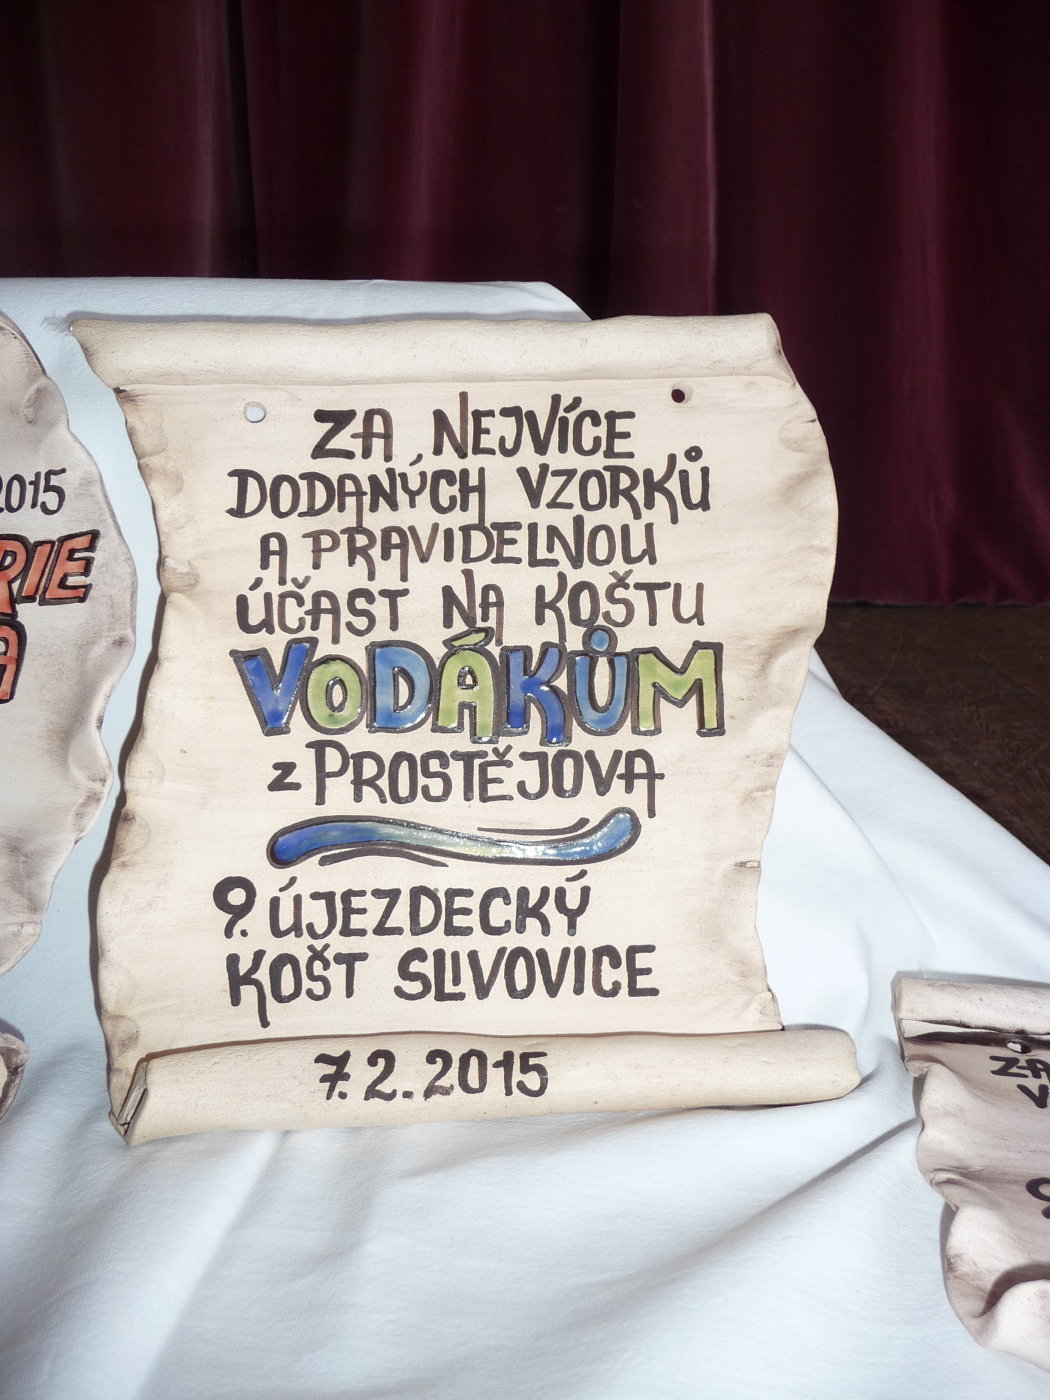 ZA NEJVÍCE
DODANÝCH VZORKŮ
A PRAVIDELNOU
ÚČAST NA KOŠTU
VODÁKŮM
Z PROSTĚJOVA
9. ÚJEZDECKÝ
KOŠT SLIVOVICE
7.2.2015
2015
ZA